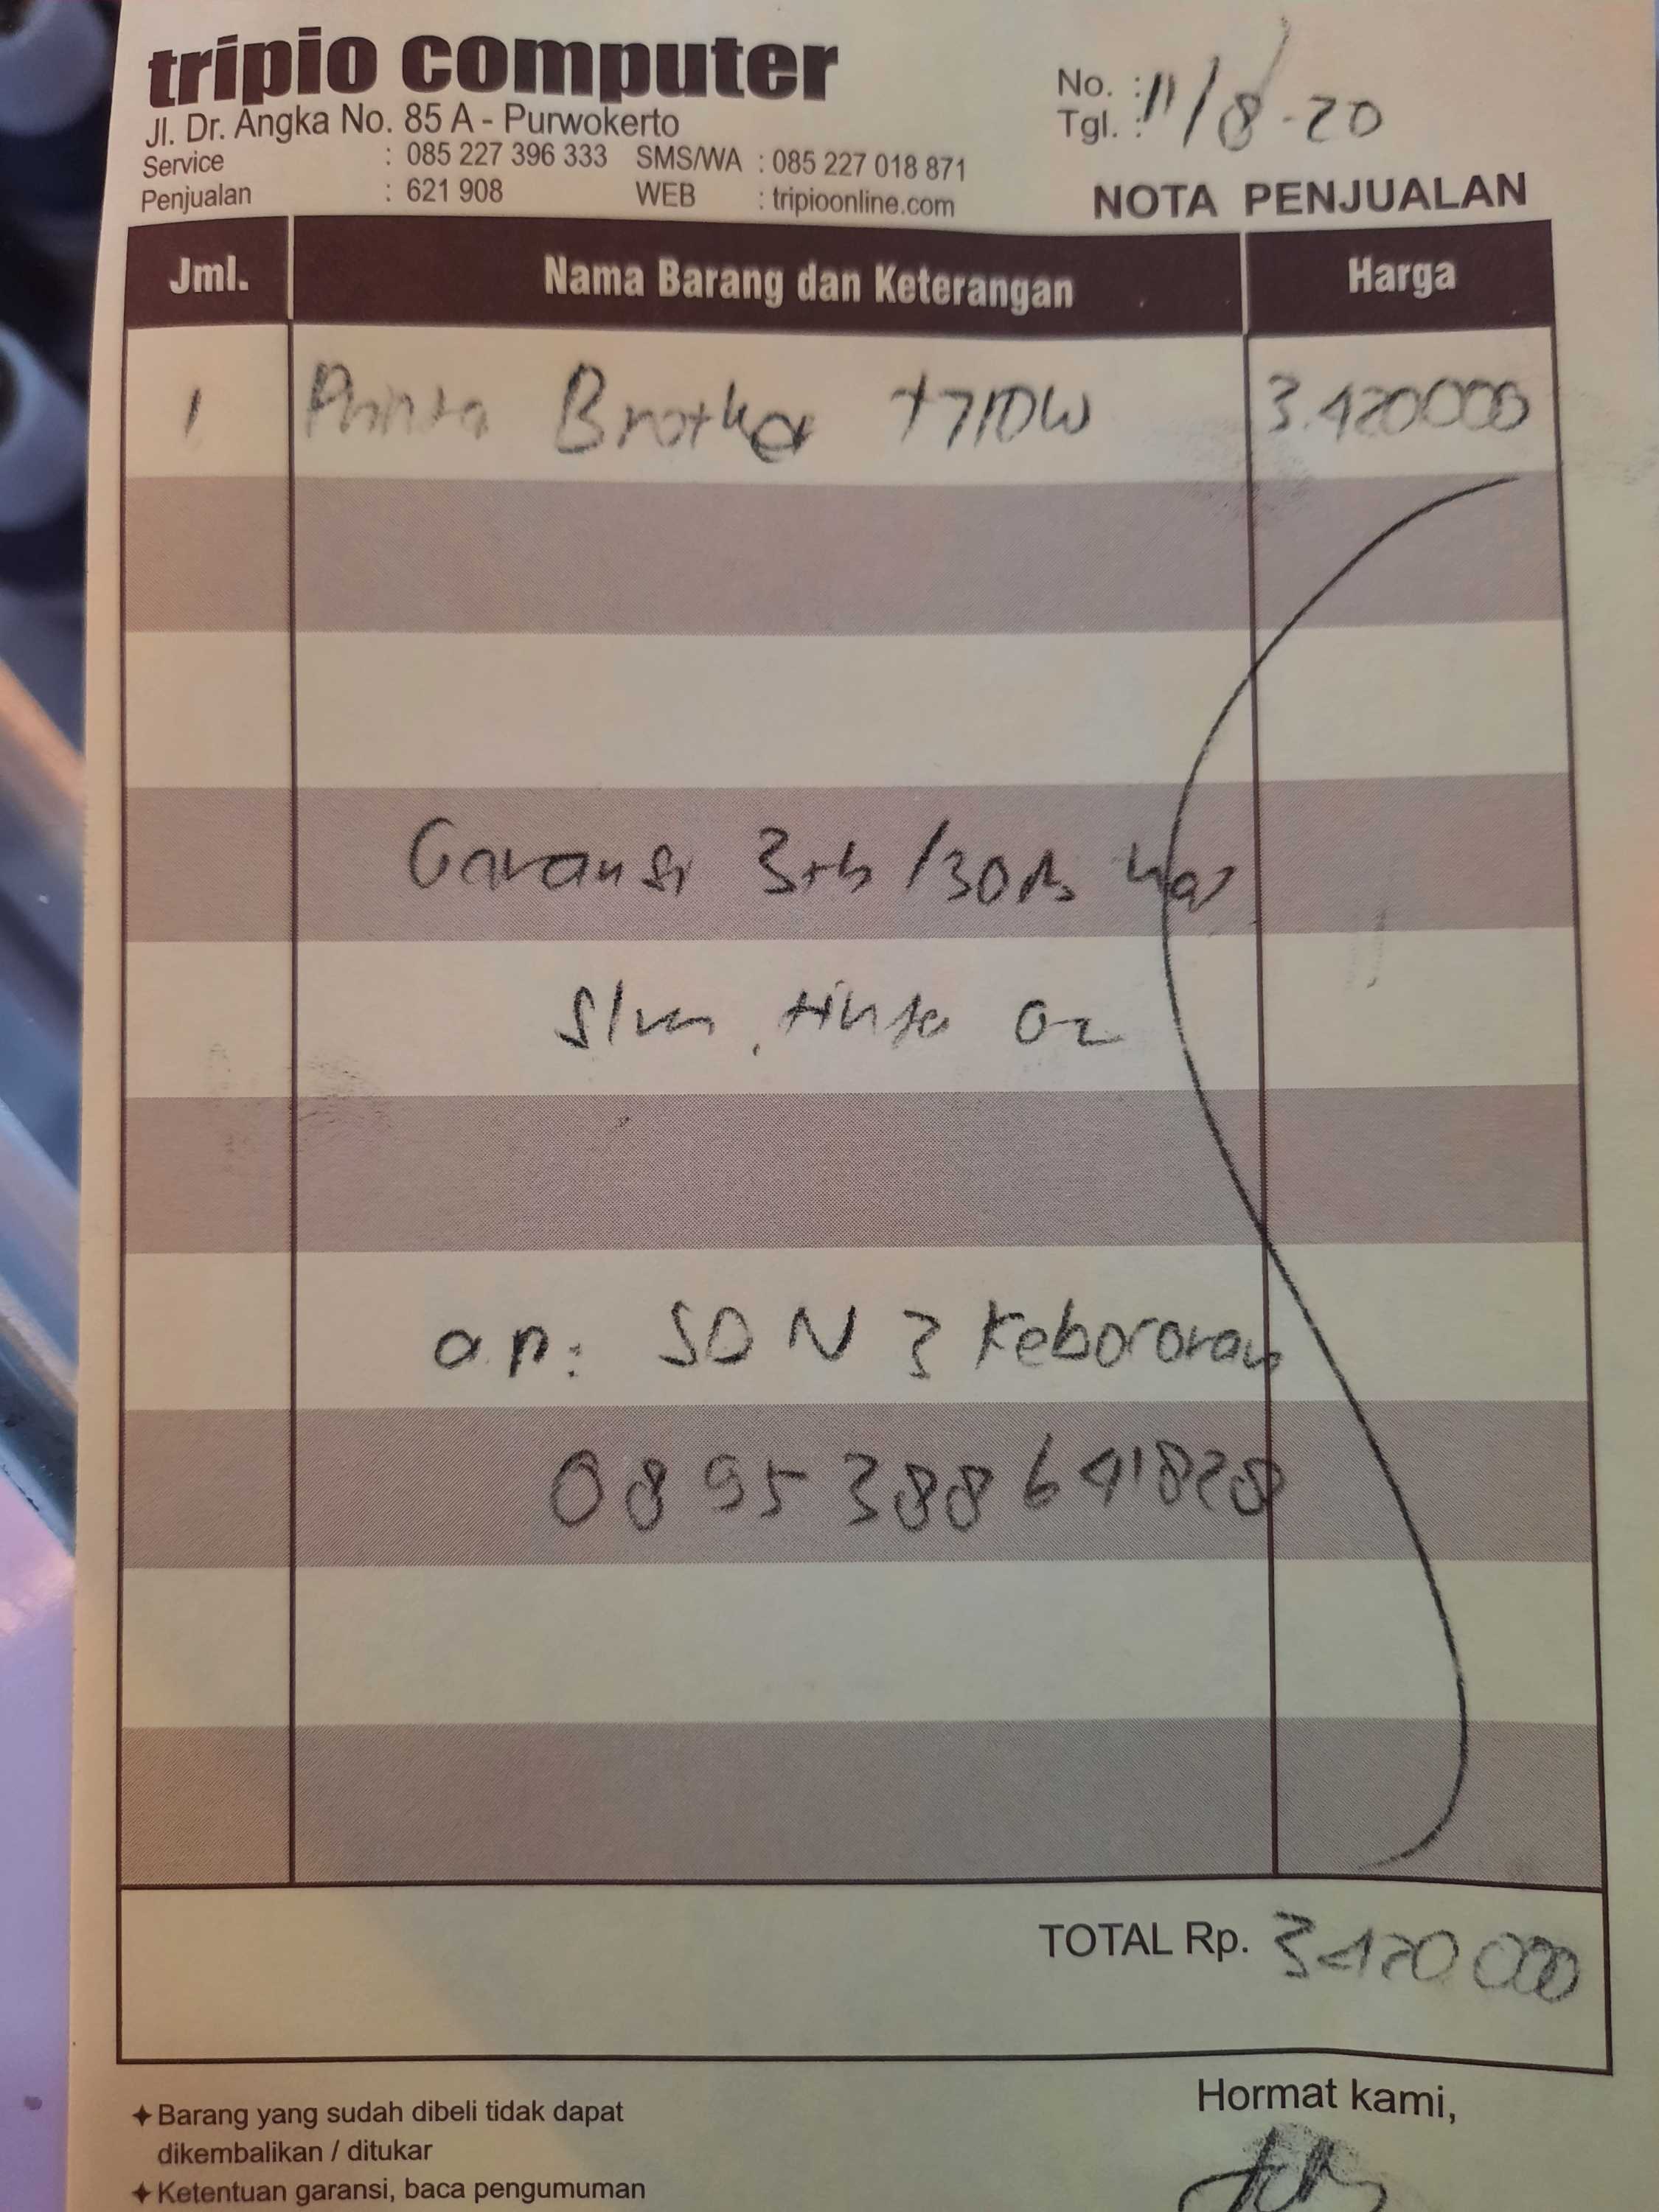 tripio computer
Jl. Dr. Angka No. 85 A - Purwokerto
Service : 085 227 396 333 SMS/WA : 085 227 018 871
Penjualan : 621 908 WEB : tripioonline.com
No. :
Tgl. : 11/8-20
NOTA PENJUALAN
Jml. Nama Barang dan Keterangan Harga
1 Brother T710W 3.420000
Garansi 3th /30rb
tinta
a.n: SDN 3 Kebocoran
0895388641828
TOTAL Rp. 3420.000
Hormat kami,
✦ Barang yang sudah dibeli tidak dapat
dikembalikan / ditukar
✦ Ketentuan garansi, baca pengumuman